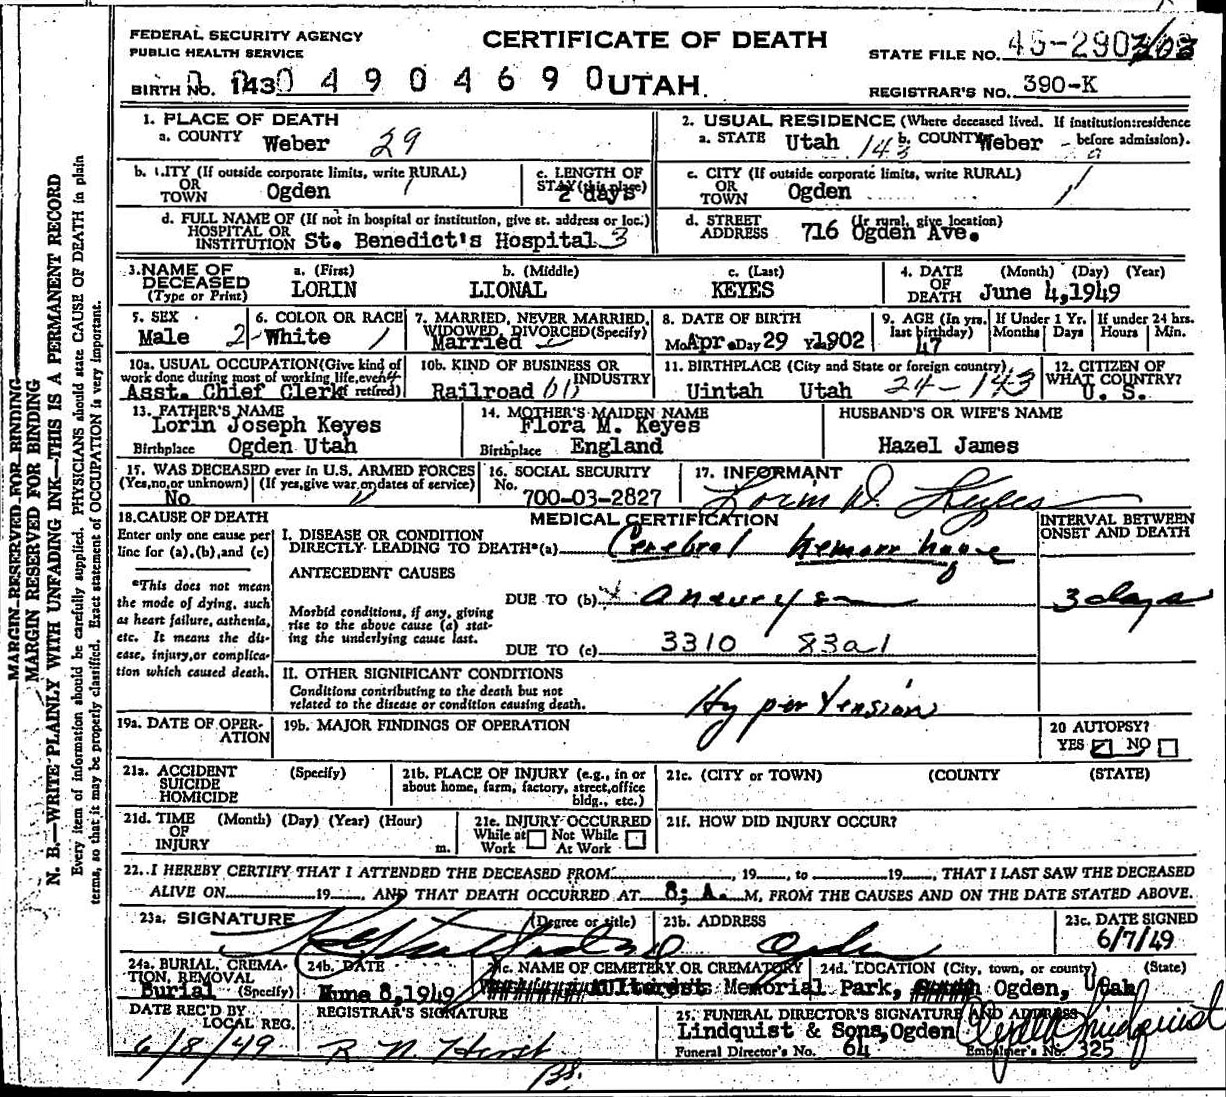 FEDERAL SECURITY AGENCY
PUBLIC HEALTH SERVICE
CERTIFICATE OF DEATH
STATE FILE NO.
BIRTH NO. 143 0 4 9 0 4 6 9 0 UTAH.
REGISTRAR'S NO. 390-K
1. PLACE OF DEATH
a. COUNTY Weber 29
2. USUAL RESIDENCE (Where deceased lived. If institution: residence before admission).
a. STATE Utah 143 b. COUNTY Weber
b. CITY (If outside corporate limits, write RURAL) OR TOWN Ogden
c. LENGTH OF STAY (this place) 2 days
c. CITY (If outside corporate limits, write RURAL) OR TOWN Ogden
d. FULL NAME OF (If not in hospital or institution, give st. address or loc.) HOSPITAL OR INSTITUTION St. Benedict's Hospital 3
d. STREET ADDRESS (If rural, give location) 716 Ogden Ave.
3. NAME OF DECEASED (Type or Print)
a. (First) LORIN
b. (Middle) LIONAL
c. (Last) KEYES
4. DATE OF DEATH (Month) (Day) (Year) June 4, 1949
5. SEX Male 2
6. COLOR OR RACE White 1
7. MARRIED, NEVER MARRIED, WIDOWED, DIVORCED (Specify) Married
8. DATE OF BIRTH Mo. Apr. Day 29 Yr. 1902
9. AGE (In yrs. last birthday) 47
If Under 1 Yr. Months Days
If under 24 hrs. Hours Min.
10a. USUAL OCCUPATION (Give kind of work done during most of working life, even if retired) Asst. Chief Clerk
10b. KIND OF BUSINESS OR INDUSTRY Railroad
11. BIRTHPLACE (City and State or foreign country) Uintah Utah 24-143
12. CITIZEN OF WHAT COUNTRY? U. S.
13. FATHER'S NAME Lorin Joseph Keyes
Birthplace Ogden Utah
14. MOTHER'S MAIDEN NAME Flora M. Keyes
Birthplace England
HUSBAND'S OR WIFE'S NAME
Hazel James
15. WAS DECEASED ever in U.S. ARMED FORCES
(Yes, no, or unknown) (If yes, give war or dates of service)
No
16. SOCIAL SECURITY No. 700-03-2827
17. INFORMANT Lorin D. Keyes
18. CAUSE OF DEATH
Enter only one cause per line for (a), (b), and (c)
*This does not mean the mode of dying, such as heart failure, asthenia, etc. It means the disease, injury, or complication which caused death.
MEDICAL CERTIFICATION
INTERVAL BETWEEN ONSET AND DEATH
I. DISEASE OR CONDITION DIRECTLY LEADING TO DEATH*(a) Cerebral hemorrhage
ANTECEDENT CAUSES
Morbid conditions, if any, giving rise to the above cause (a) stating the underlying cause last.
DUE TO (b)
3 days
DUE TO (c) 3310 83a1
II. OTHER SIGNIFICANT CONDITIONS
Conditions contributing to the death but not related to the disease or condition causing death.
Hypertension
19a. DATE OF OPERATION
19b. MAJOR FINDINGS OF OPERATION
20 AUTOPSY?
YES NO
21a. ACCIDENT SUICIDE HOMICIDE (Specify)
21b. PLACE OF INJURY (e.g., in or about home, farm, factory, street, office bldg., etc.)
21c. (CITY or TOWN) (COUNTY (STATE)
21d. TIME OF INJURY (Month) (Day) (Year) (Hour) m.
21e. INJURY OCCURRED
While at Work Not While At Work
21f. HOW DID INJURY OCCUR?
22. I HEREBY CERTIFY THAT I ATTENDED THE DECEASED FROM , 19 , to 19 , THAT I LAST SAW THE DECEASED
ALIVE ON 19 , AND THAT DEATH OCCURRED AT 8; A. M, FROM THE CAUSES AND ON THE DATE STATED ABOVE.
23a. SIGNATURE (Degree or title)
23b. ADDRESS Ogden
23c. DATE SIGNED 6/7/49
24a. BURIAL, CREMATION, REMOVAL (Specify) Burial
24b. DATE June 8, 1949
24c. NAME OF CEMETERY OR CREMATORY Memorial Park,
24d. LOCATION (City, town, or county) (State) Ogden, Utah
DATE REC'D BY LOCAL REG. 6/8/49
REGISTRAR'S SIGNATURE
25. FUNERAL DIRECTOR'S SIGNATURE AND ADDRESS
Lindquist & Sons, Ogden
Funeral Director's No. 64 Embalmer's No. 325
MARGIN RESERVED FOR BINDING
MARGIN RESERVED FOR BINDING
N. B.—WRITE PLAINLY WITH UNFADING INK—THIS IS A PERMANENT RECORD
Every item of information should be carefully supplied. PHYSICIANS should state CAUSE OF DEATH in plain
terms, so that it may be properly classified. Exact statement of OCCUPATION is very important.